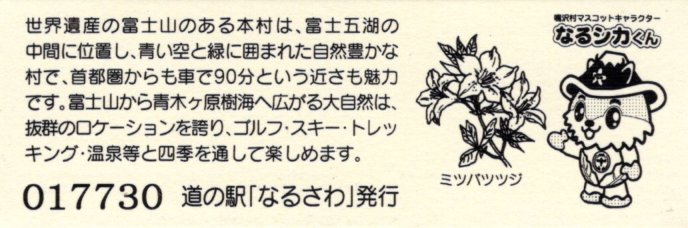 世界遺産の富士山のある本村は、富士五湖の
中間に位置し、青い空と緑に囲まれた自然豊かな
村で、首都圏からも車で90分という近さも魅力
です。富士山から青木ヶ原樹海へ広がる大自然は、
抜群のロケーションを誇り、ゴルフ・スキー・トレッ
キング・温泉等と四季を通して楽しめます。
017730 道の駅「なるさわ」発行
ミツバツツジ
鳴沢村マスコットキャラクター
なるシカくん